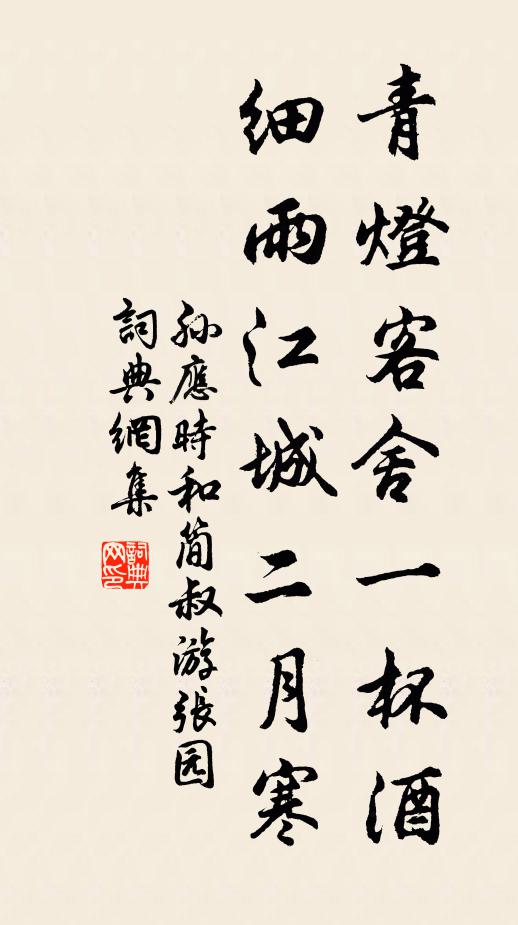 青燈客舍一杯酒
細雨江城二月寒
孙應時和簡叔游張园
詞典網集
詞典网印